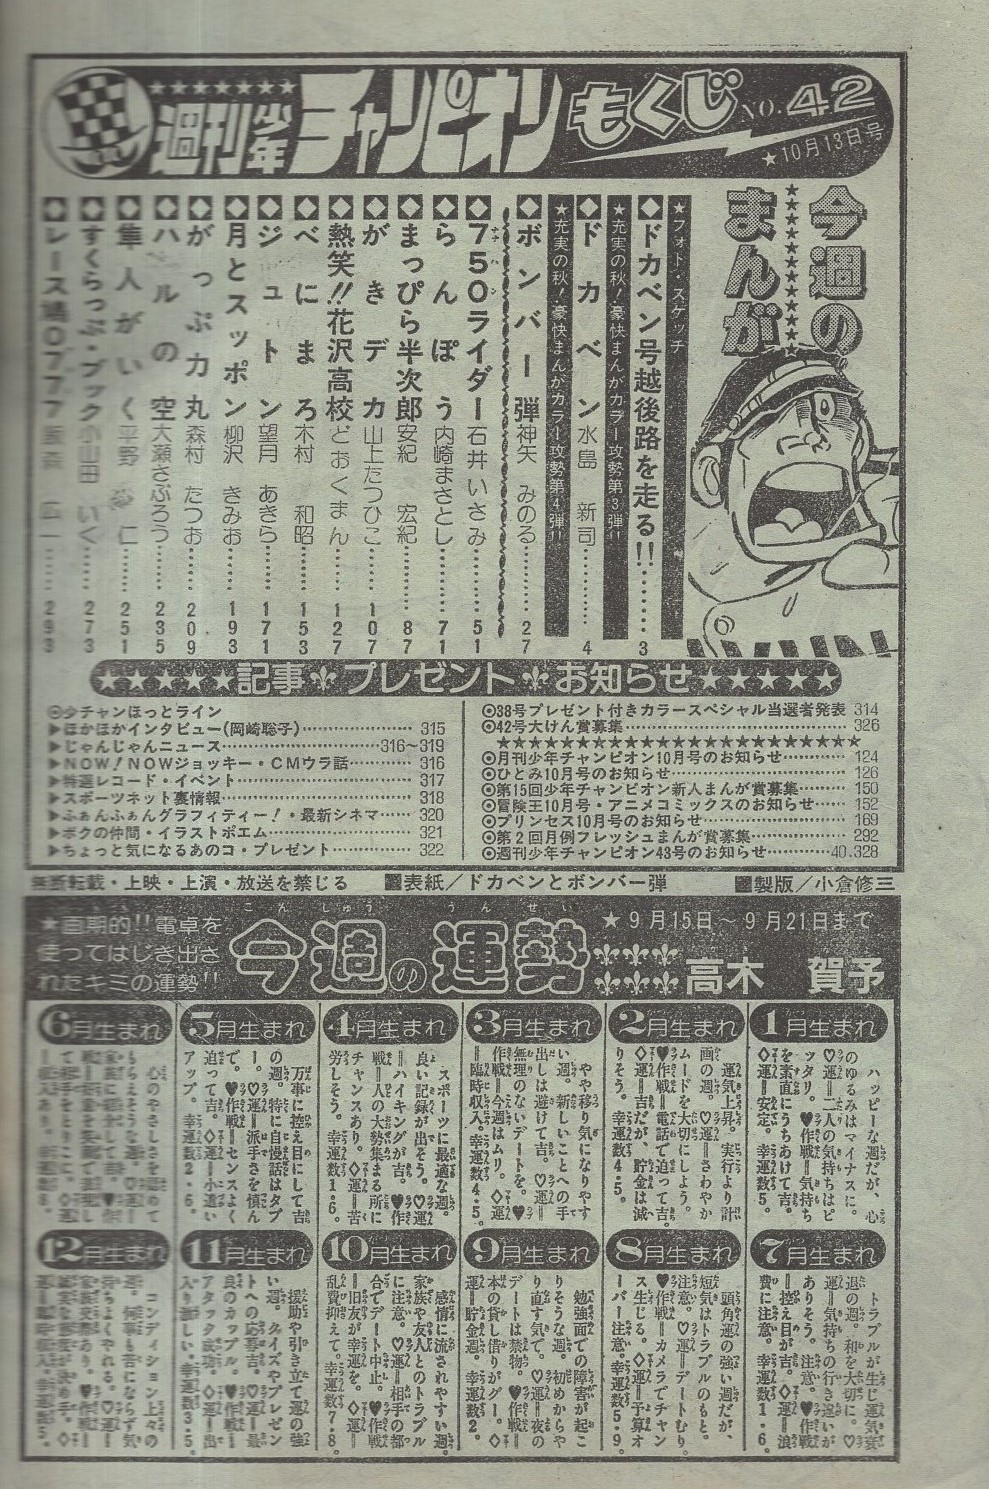 週刊少年チャンピオンもくじ NO.42
★10月13日号
今週の
まんが
★フォト・スケッチ
◆ドカベン号越後路を走る!!……3
★充実の秋!豪快まんがカラー攻勢第3弾!!
◆ドカベン 水島 新司……4
★充実の秋!豪快まんがカラー攻勢第4弾!!
◆ボンバー弾 神矢 みのる……27
◆750ライダー 石井 いさみ……51
◆らんぽう 内崎まさとし……71
◆まっぴら半次郎 安紀 宏紀……87
◆がきデカ 山上たつひこ……107
◆熱笑!!花沢高校 どおくまん……127
◆べにまろ 木村 和昭……153
◆ジュトン 望月 あきら……171
◆月とスッポン 柳沢 きみお……193
◆がっぷ力丸 森村 たつお……209
◆ハルの空 大瀬さぶろう……235
◆隼人がいく 平野 仁……251
◆すくらっぷ・ブック 小山田 いく……273
◆レース鳩0777 飯森 広一……293
★★★★★記事 プレゼント お知らせ★★★★★
◎少チャンほっとライン
▶ほかほかインタビュー(岡崎聡子)……315
▶じゃんじゃんニュース……316~319
▶NOW!NOWジョッキー・CMウラ話……316
▶特選レコード・イベント……317
▶スポーツネット裏情報……318
▶ふぁんふぁんグラフィティー!・最新シネマ……320
▶ボクの仲間・イラストポエム……321
▶ちょっと気になるあのコ・プレゼント……322
◎38号プレゼント付きカラースペシャル当選者発表 314
◎42号大けん賞募集……326
◎月刊少年チャンピオン10月号のお知らせ……124
◎ひとみ10月号のお知らせ……126
◎第15回少年チャンピオン新人まんが賞募集……150
◎冒険王10月号・アニメコミックスのお知らせ……152
◎プリンセス10月号のお知らせ……169
◎第2回月例フレッシュまんが賞募集……292
◎週刊少年チャンピオン43号のお知らせ……40,328
無断転載・上映・上演・放送を禁じる ■表紙/ドカベンとボンバー弾 ■製版/小倉修三
★画期的!!電卓を
使ってはじき出さ
れたキミの運勢!!
今週の運勢
こんしゅう うんせい
★9月15日~9月21日まで
高木 賀予
1月生まれ
ハッピーな週だが、心
のゆるみはマイナスに。
♡運=二人の気持ちはピ
ッタリ。♥作戦=気持ち
を素直にうちあけて吉。
◇運=安定。幸運数5。
2月生まれ
運気上昇。実行より計
画の週。♡運=さわやか
ムードを大切にしよう。
♥作戦=電話で迫って吉。
◇運=吉だが、貯金は減
りそう。幸運数4・5。
3月生まれ
やや移り気になりやす
い週。新しいことへの手
出しは避けて吉。♡運=
無理のないデートを。♥
作戦=今週はムリ。◇運
=臨時収入。幸運数4・5。
4月生まれ
スポーツに最適な週。
良い記録が出そう。♡運
=ハイキングが吉。♥作
戦=人の大勢集まる所に
チャンスあり。◇運=苦
労しそう。幸運数1・6。
5月生まれ
万事に控え目にして吉
の週。特に自慢話はタブ
ー。♡運=派手さを慎ん
で。♥作戦=センスよく
迫って吉。◇運=小遣い
アップ。幸運数2・6。
6月生まれ
心のやさしさを認めて
もらえそうな週。
7月生まれ
トラブルが生じ運気衰
退の週。和を大切に。♡
運=気持ちの行き違いが
ありそう。注意。♥作戦
=控え目が吉。◇運=浪
費に注意。幸運数1・6。
8月生まれ
頭角運の強い週だが、
短気はトラブルのもと。
注意。♡運=デートむり。
♥作戦=カメラでチャン
ス生じる。◇運=予算オ
ーバー注意。幸運数5・9。
9月生まれ
勉強面での障害が起こ
りそうな週。初めからや
り直す気で。♡運=夜の
デートは禁物。♥作戦=
本の貸し借りがグー。◇
運=貯金週。幸運数2。
10月生まれ
感情に流されやすい週。
家族や友人とのトラブル
に注意。♡運=相手の都
合でデート中止。♥作戦
=旧友が幸運を。◇運=
乱費抑えて。幸運数7・8。
11月生まれ
援助や引き立て運の強
い週。クイズやプレゼン
トへの応募吉。♡運=最
良のカップル。♥作戦=
アタック成功。◇運=出
入り激しい。幸運数3・5。
12月生まれ
コンディション上々の
週。何事も苦にならず気
持ちよくやれる。♡運=